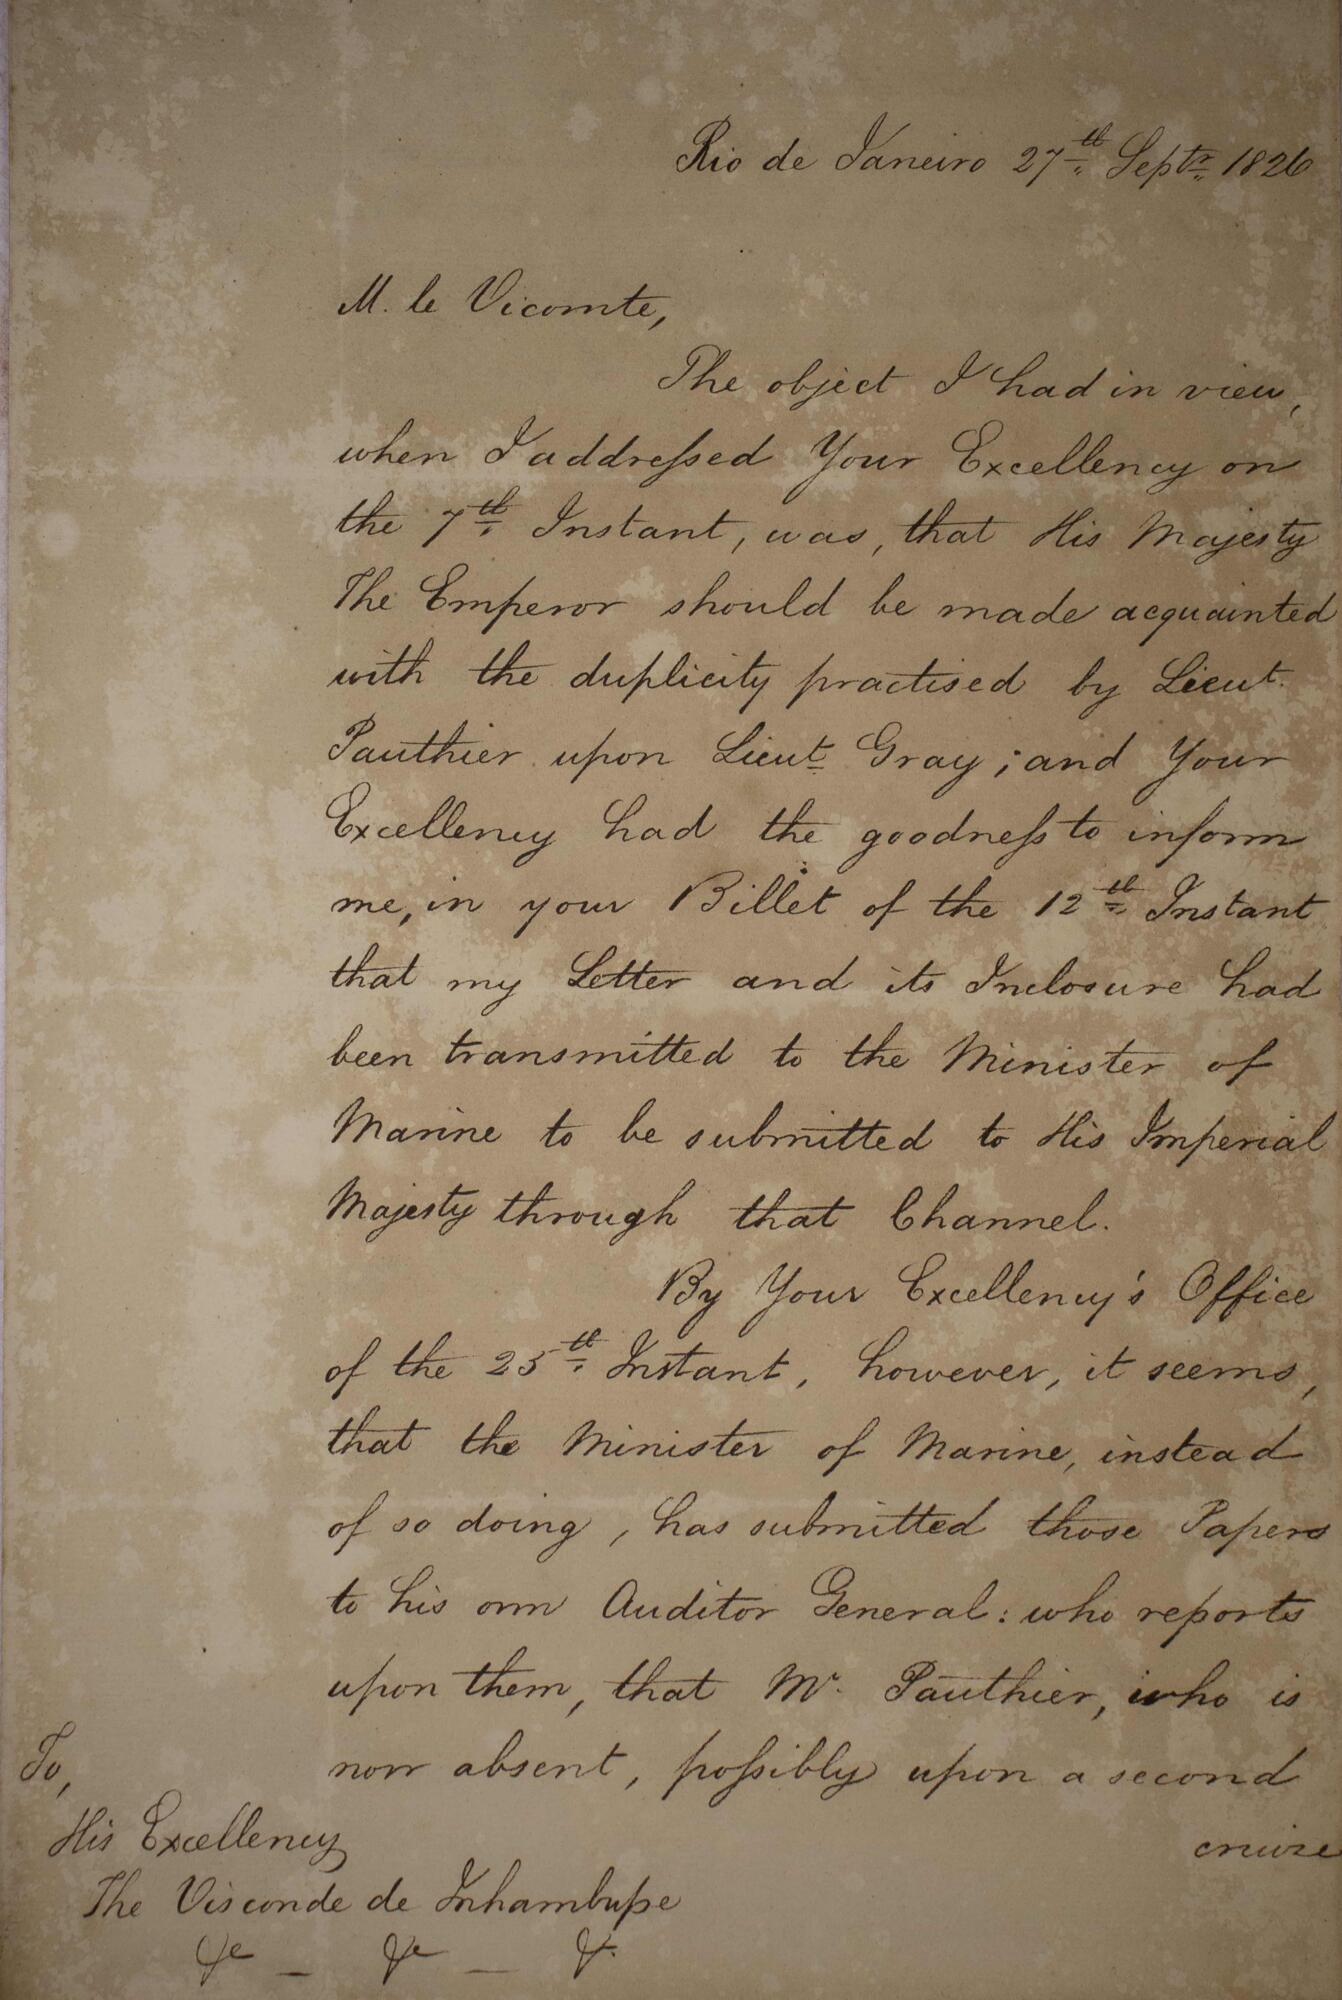 Rio de Janeiro 27th Septr 1826
M. le Vicomte,
The object I had in view,
when I addreſsed Your Excellency on
the 7th Instant, was, that His Majesty
The Emperor should be made acquainted
with the duplicity practised by Lieut.
Pauthier upon Lieut. Gray; and Your
Excellency had the goodneſs to inform
me, in your Billet of the 12th Instant
that my Letter and its Inclosure had
been transmitted to the Minister of
Marine to be submitted to His Imperial
Majesty through that Channel.
By Your Excellency's Office
of the 25th Instant, however, it seems,
that the Minister of Marine, instead
of so doing, has submitted those Papers
to his own Auditor General: who reports
upon them, that Mr. Pauthier, who is
now absent, poſsibly upon a second
cruize
To,
His Excellency
The Visconde de Inhambupe
&c _ &c _ &.